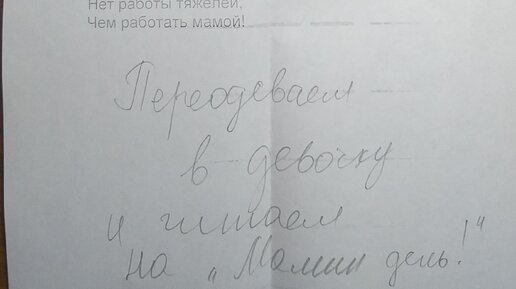 Нет работы тяжелей,
Чем работать мамой!
Переодеваем
в девочку
и читаем
на „Мамин день!“